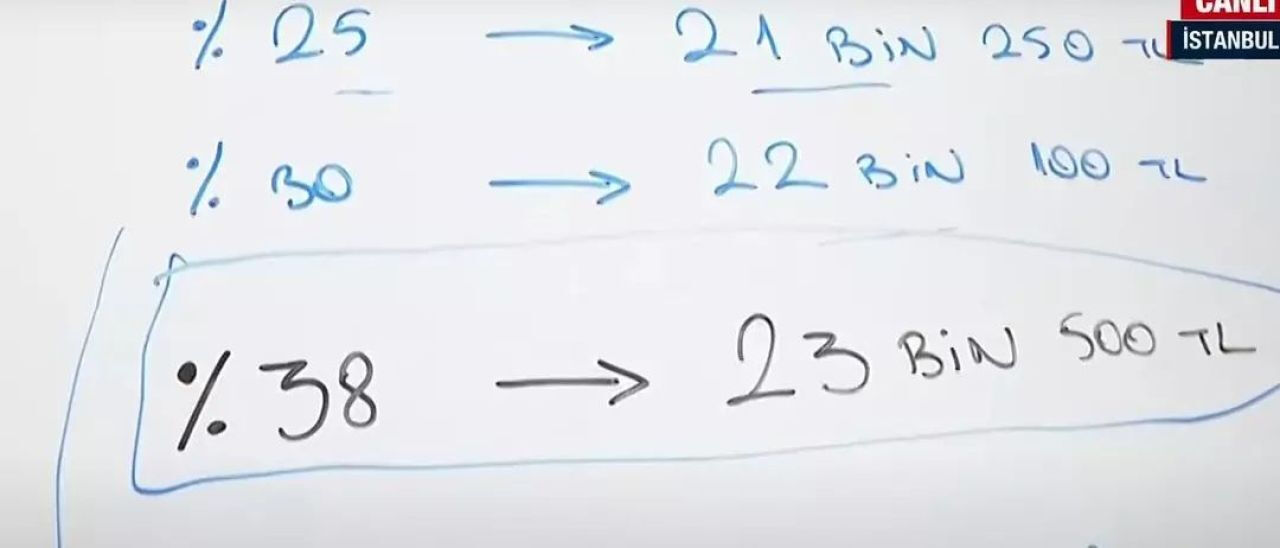 CANLI
İSTANBUL
% 25 → 21 BİN 250 TL
% 30 → 22 BİN 100 TL
% 38 → 23 BİN 500 TL